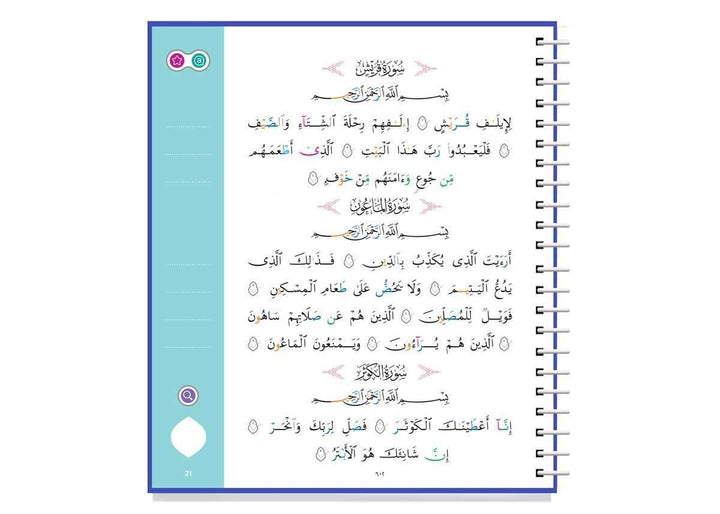 سُورَةُ قُرَيْشٍ
بِسْمِ اللَّهِ الرَّحْمَٰنِ الرَّحِيمِ
لِإِيلَٰفِ قُرَيْشٍ ۝ إِۦلَٰفِهِمْ رِحْلَةَ الشِّتَآءِ وَالصَّيْفِ
۝ فَلْيَعْبُدُوا۟ رَبَّ هَٰذَا الْبَيْتِ ۝ الَّذِىٓ أَطْعَمَهُم
مِّن جُوعٍ وَءَامَنَهُم مِّنْ خَوْفٍ ۝
سُورَةُ الْمَاعُونِ
بِسْمِ اللَّهِ الرَّحْمَٰنِ الرَّحِيمِ
أَرَءَيْتَ الَّذِى يُكَذِّبُ بِالدِّينِ ۝ فَذَٰلِكَ الَّذِى
يَدُعُّ الْيَتِيمَ ۝ وَلَا يَحُضُّ عَلَىٰ طَعَامِ الْمِسْكِينِ ۝
فَوَيْلٌ لِّلْمُصَلِّينَ ۝ الَّذِينَ هُمْ عَن صَلَاتِهِمْ سَاهُونَ
۝ الَّذِينَ هُمْ يُرَآءُونَ ۝ وَيَمْنَعُونَ الْمَاعُونَ ۝
سُورَةُ الْكَوْثَرِ
بِسْمِ اللَّهِ الرَّحْمَٰنِ الرَّحِيمِ
إِنَّآ أَعْطَيْنَٰكَ الْكَوْثَرَ ۝ فَصَلِّ لِرَبِّكَ وَانْحَرْ ۝
إِنَّ شَانِئَكَ هُوَ الْأَبْتَرُ ۝
٦٠٢
21